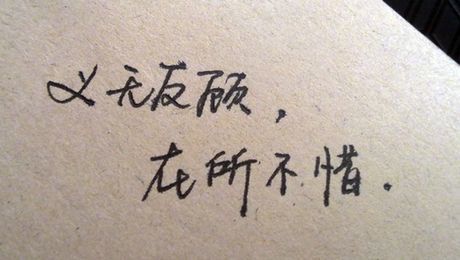 义无反顾，
在所不惜.